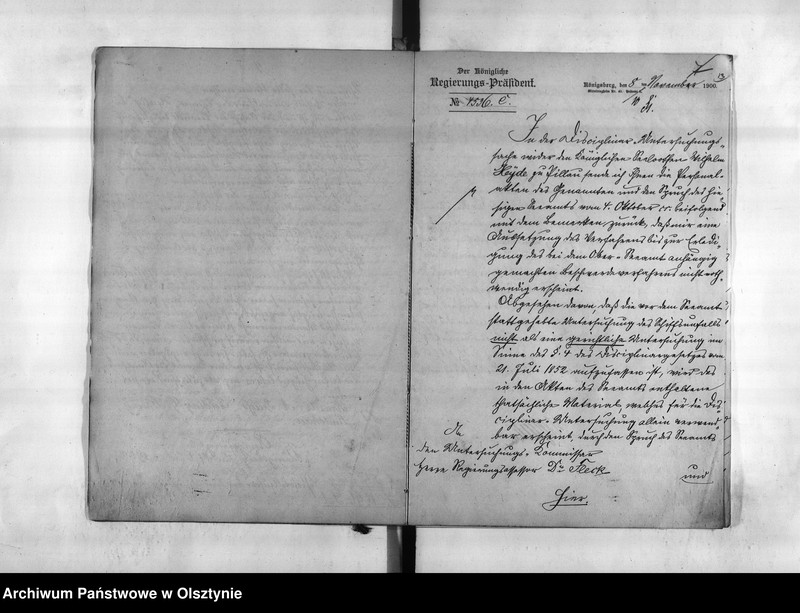 Der Königliche
Regierungs-Präsident.
№ 4536. C.
7
13
Königsberg, den 8 November 1900.
In der Disciplinar-Untersuchungs-
sache wider den Königlichen Seelootsen Wilhelm
Heyde zu Pillau sende ich Ihnen die Personal-
akten des Genannten und den Spruch des hie-
sigen Seeamts vom 4. Oktober cr. beifolgend
mit dem Bemerken zurück, daß mir eine
Aussetzung des Verfahrens bis zur Erledi-
gung des bei dem Ober-Seeamt anhängig
gemachten Beschwerdeverfahrens nicht noth-
wendig erscheint.
Abgesehen davon, daß die vor dem Seeamte
stattgehabte Untersuchung des Schiffsunfalls
nicht als eine gerichtliche Untersuchung im
Sinne des §. 4 des Disciplinargesetzes vom
21. Juli 1852 aufzufassen ist, wird das
in den Akten des Seeamts enthaltene
thatsächliche Material, welches für die Dis-
ciplinar-Untersuchung allein verwend-
bar erscheint, durch den Spruch des Seeamts
und
An
den Untersuchungs-Kommissar
Herrn Regierungsassessor Dr. Fleck
Hier.
Archiwum Państwowe w Olsztynie